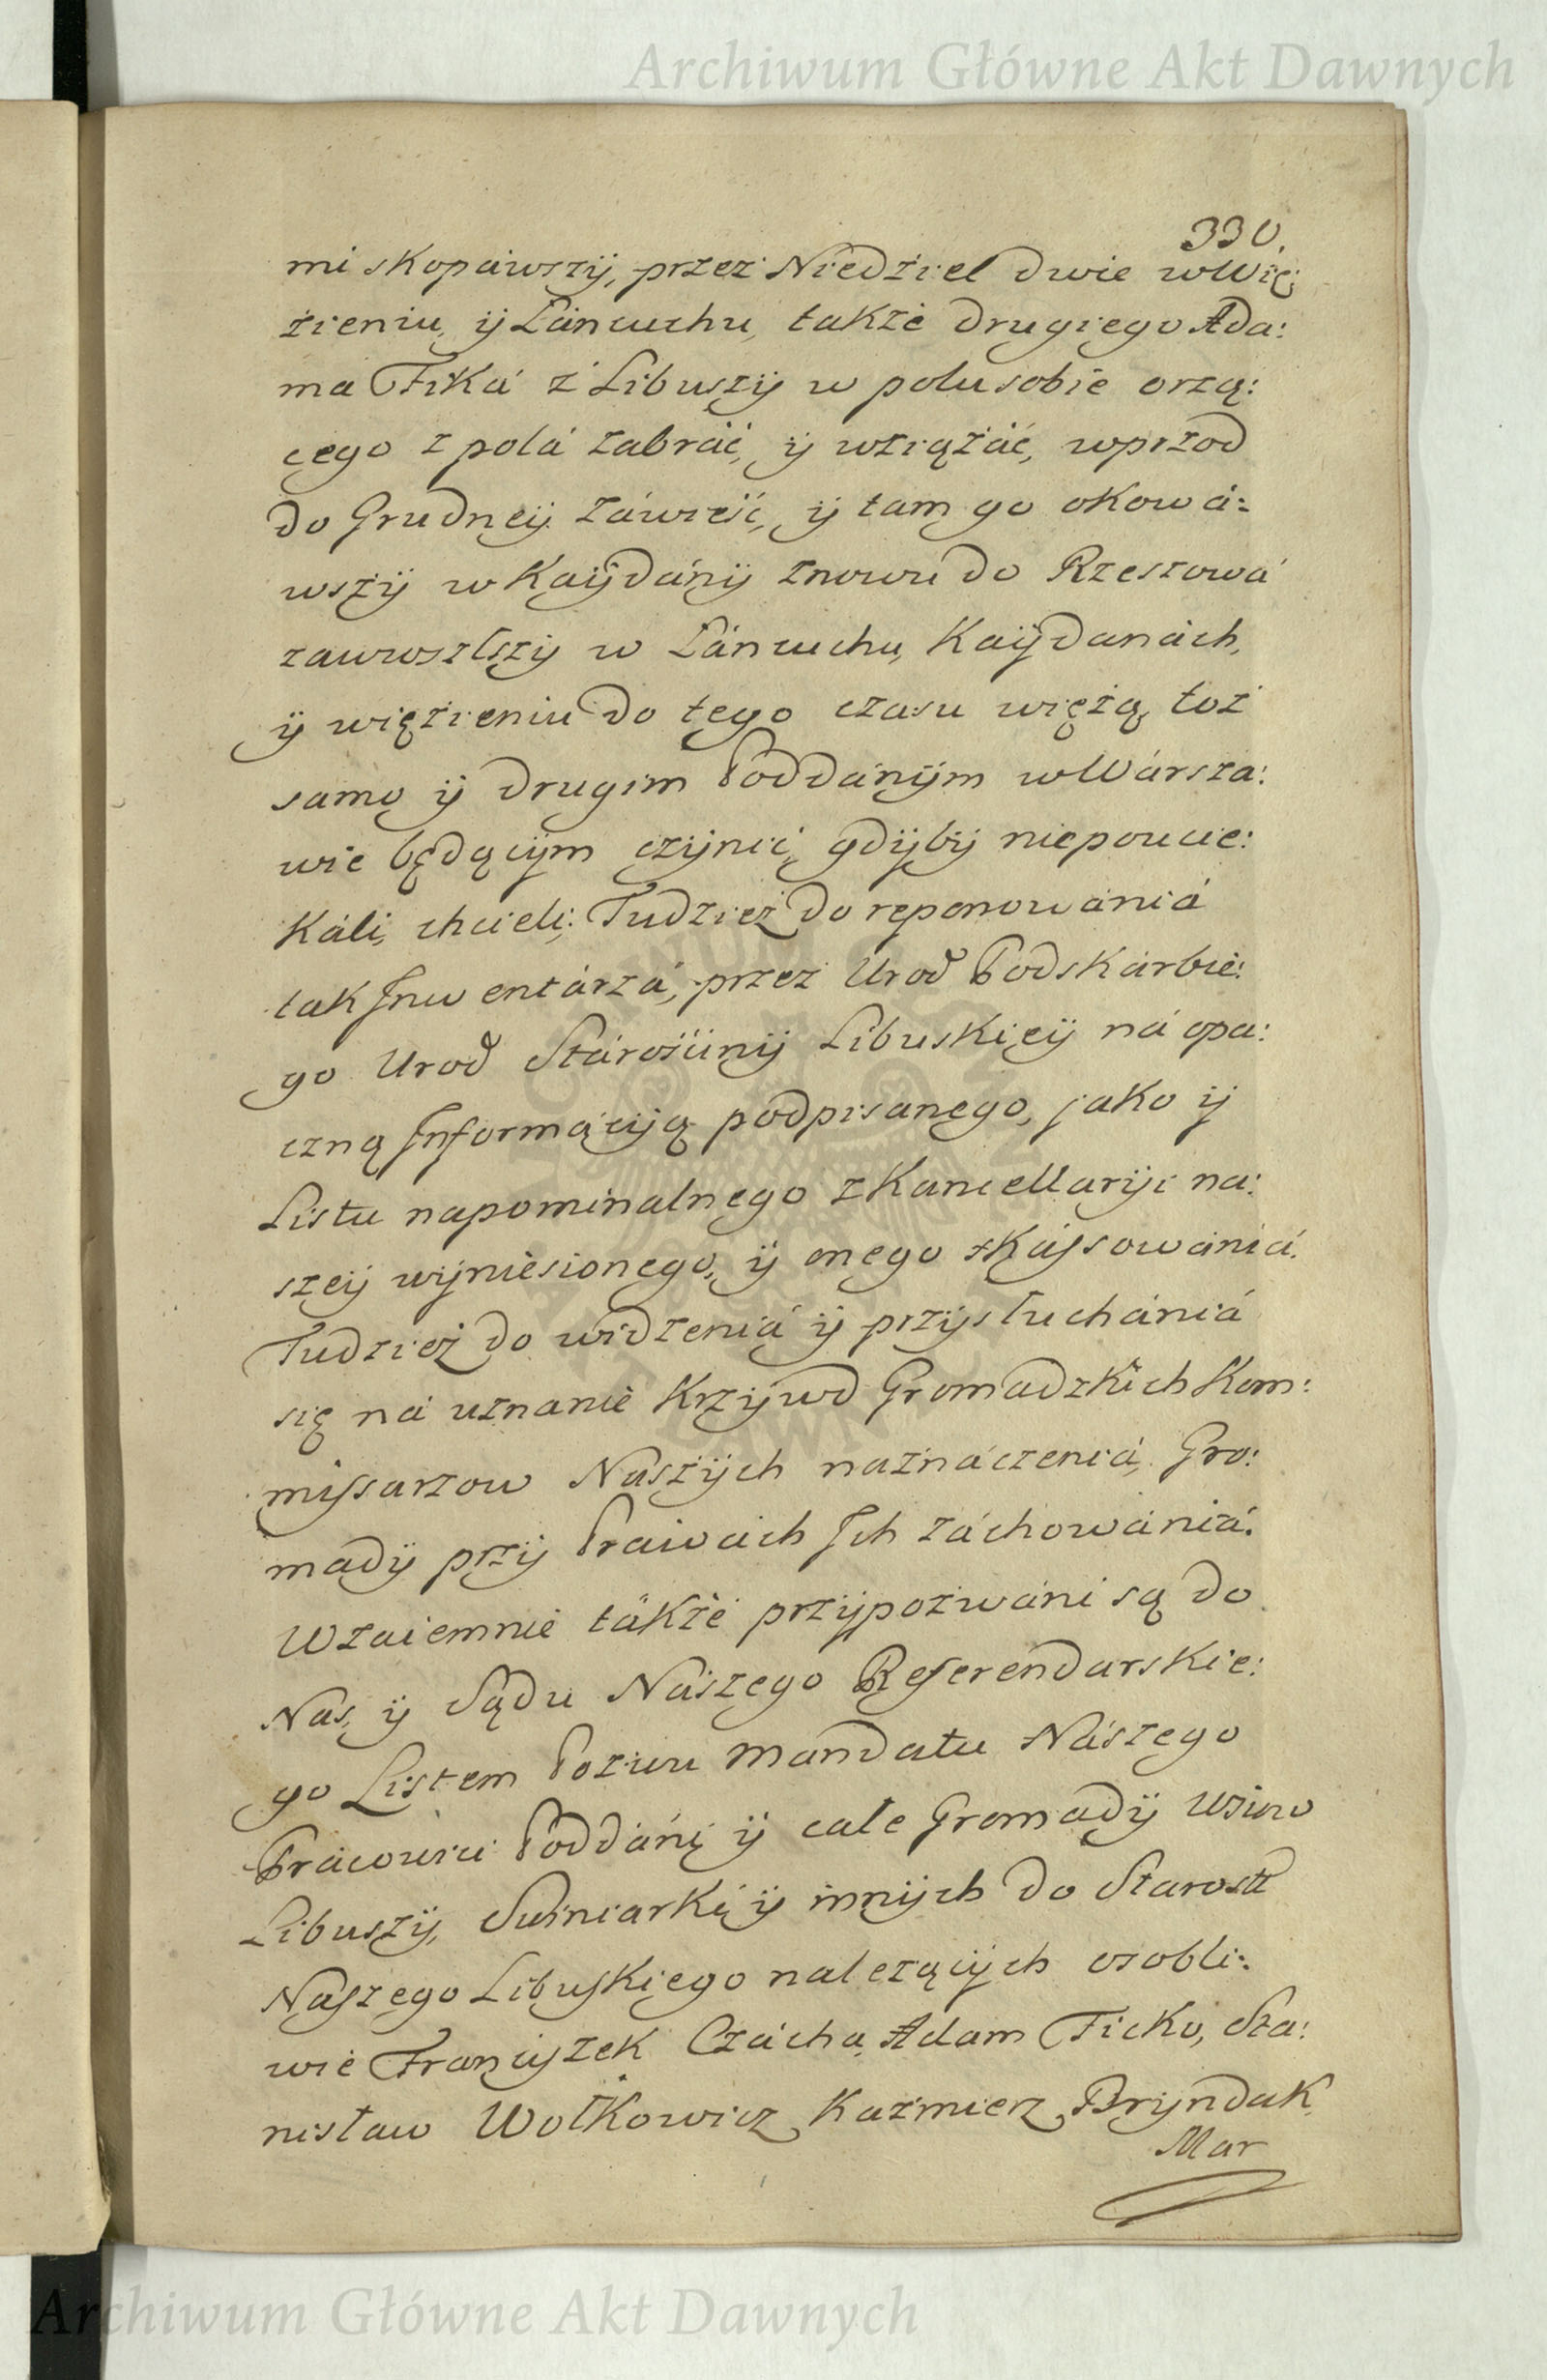 Archiwum Główne Akt Dawnych
330.
mi skopawszÿ, przez Niedziel dwie w Wię:
zieniu, ÿ Łáncuchu, także drugiego Ada:
ma Fiká z Libuszÿ w polu sobie orzą:
cego z polá zabráć, ÿ wziąźáć, wprzod
do Grudneÿ záwieść, ÿ tam go okowá:
wszÿ w Kaÿdánÿ znowu do Rzeszowá
zawioszszÿ w Łáncuchu, Kaÿdanách,
ÿ więzieniu do tego czasu więżą, toż
samo ÿ drugim Poddánÿm w Wársza:
wie będącÿm czÿnić, gdÿbÿ niepoucie:
káli, chcieli; Tudzież do reponowániá
tak Inwentárzá, przez Urod Podskárbie:
go Urod Stárościnÿ Libuskieÿ ná opa:
czną Informácÿą podpisanego, jako ÿ
Listu napominalnego z Kancellarÿi na:
szeÿ wÿniesionego, ÿ onego skássowániá.
Tudzież do widzeniá ÿ przÿsłuchániá
się ná uznanie Krzÿwd Gromadzkich Kom:
missarzow Nászÿch naznáczeniá, Gro:
madÿ przÿ Práwách Ich záchowániá.
Wzaiemnie tákże przÿpozwáni są do
Nas, ÿ Sądu Nászego Referendarskie:
go Listem Pozwu Mandatu Nászego
Prácowici Poddáni ÿ całe Gromadÿ Wsiow
Libuszÿ, Suśniarki ÿ innÿch do Starostt
Naszego Libuskiego nalezącÿch osobli:
wie Francÿszek Czáchá, Adam Ficko, Sta:
nisław Wołkowicz, Kazmierz Brÿndak,
Mar
Archiwum Główne Akt Dawnych